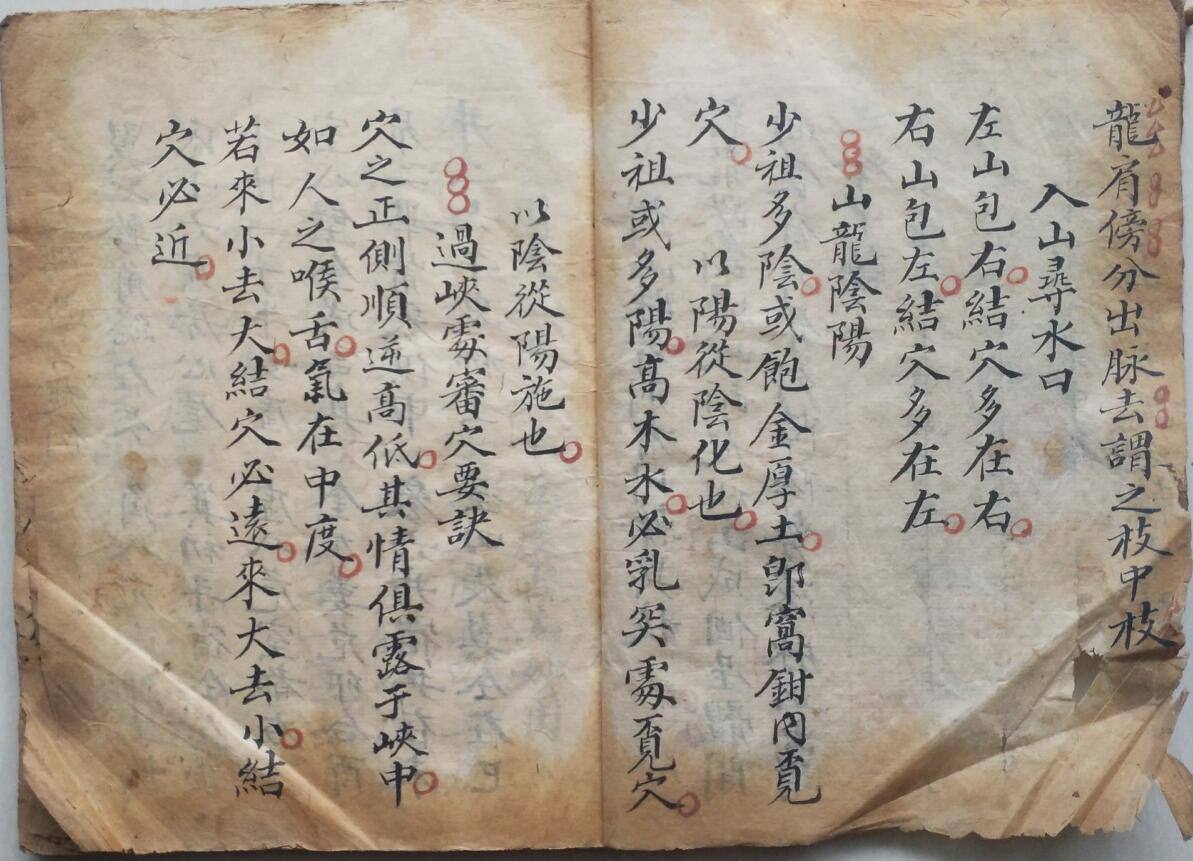 龍肩傍分出脉去謂之枝中枝
入山尋水口
左山包右結穴多在右
右山包左結穴多在左
山龍陰陽
少祖多陰或飽金厚土卽窩鉗內覔
穴 以陽從陰化也
少祖或多陽高木水必乳突處覔穴
以陰從陽施也
過峽處審穴要訣
穴之正側順逆高低其情俱露于峽中
如人之喉舌氣在中度
若來小去大結穴必遠來大去小結
穴必近